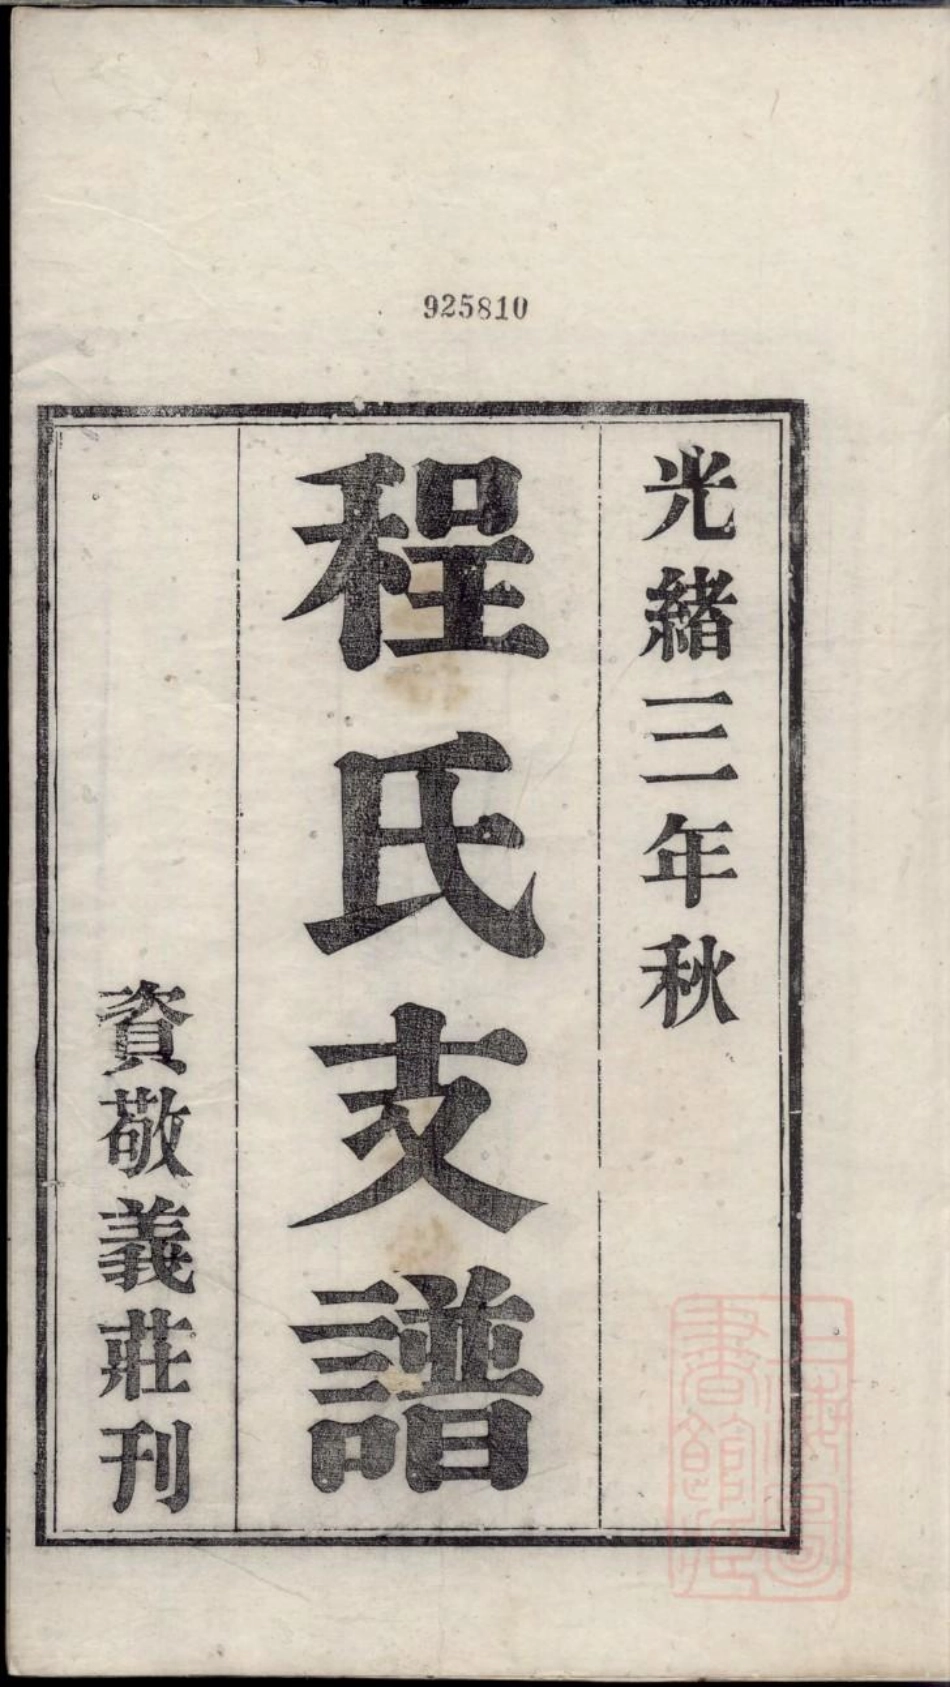 925810
光緒三年秋
程氏支譜
資敬義莊刊
上海圖書館藏